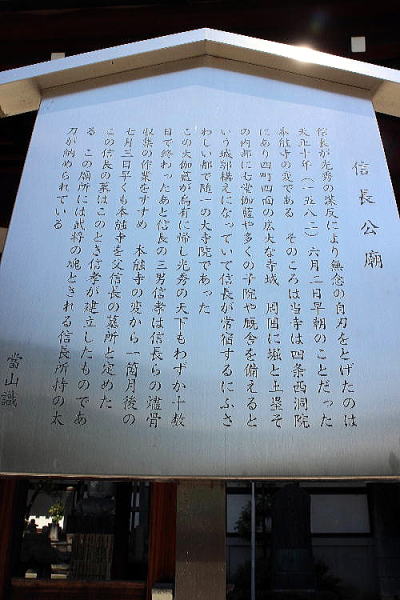 信長公廟
信長が光秀の謀反により無念の自刃をとげたのは
天正十年（一五八二）六月二日早朝のことだった
本能寺の変である　そのころは当寺は四条西洞院
にあり四町四面の広大な寺域　周囲に堀と土塁そ
の内部に七堂伽藍や多くの子院や厩舎を備えると
いう城郭構えになっていて信長が常宿するにふさ
わしい都で随一の大寺院であった
この大伽藍が烏有に帰し光秀の天下もわずか十数
日で終わったあと信長の三男信孝は信長らの燼骨
収集の作業をすすめ　本能寺の変から一箇月後の
七月三日早くも本能寺を父信長の墓所と定めた
この信長の墓はこのとき信孝が建立したものであ
る　この廟所には武将の魂とされる信長所持の太
刀が納められている
当山識